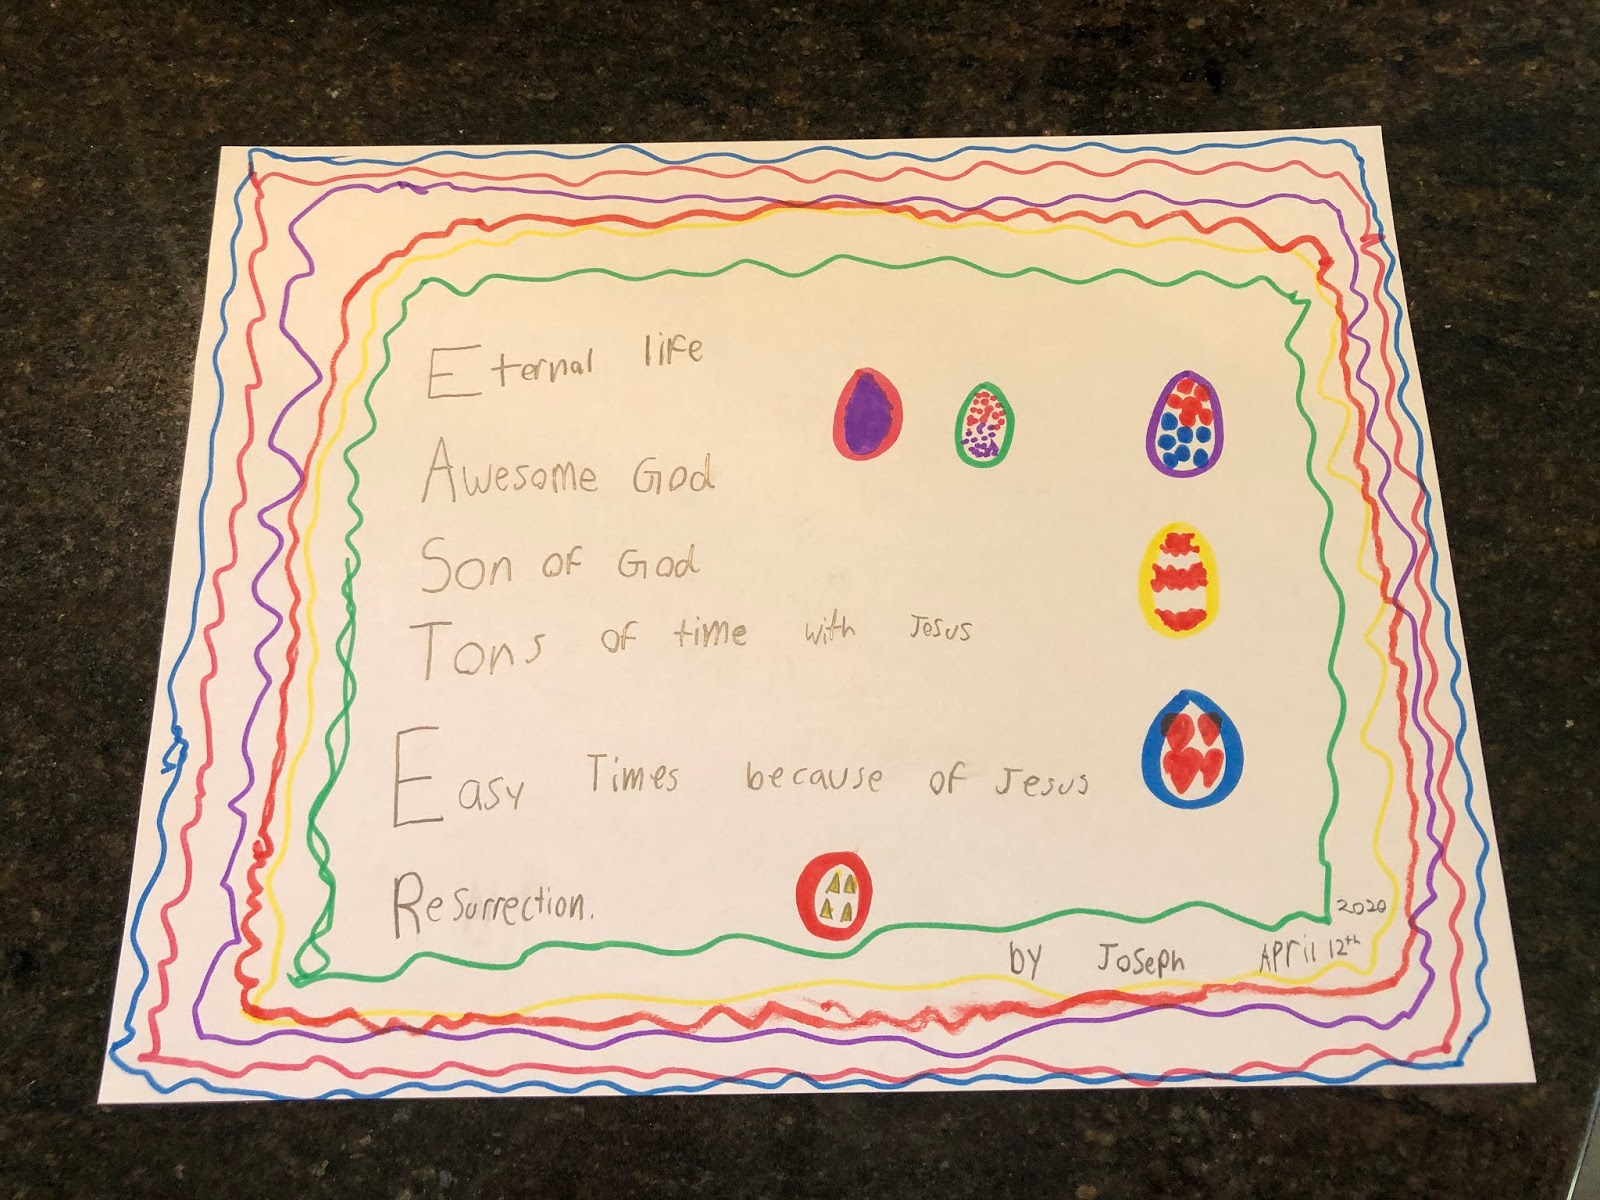 Eternal life
Awesome God
Son of God
Tons of time with Jesus
Easy Times because of Jesus
Resurrection.
2020
by Joseph April 12th